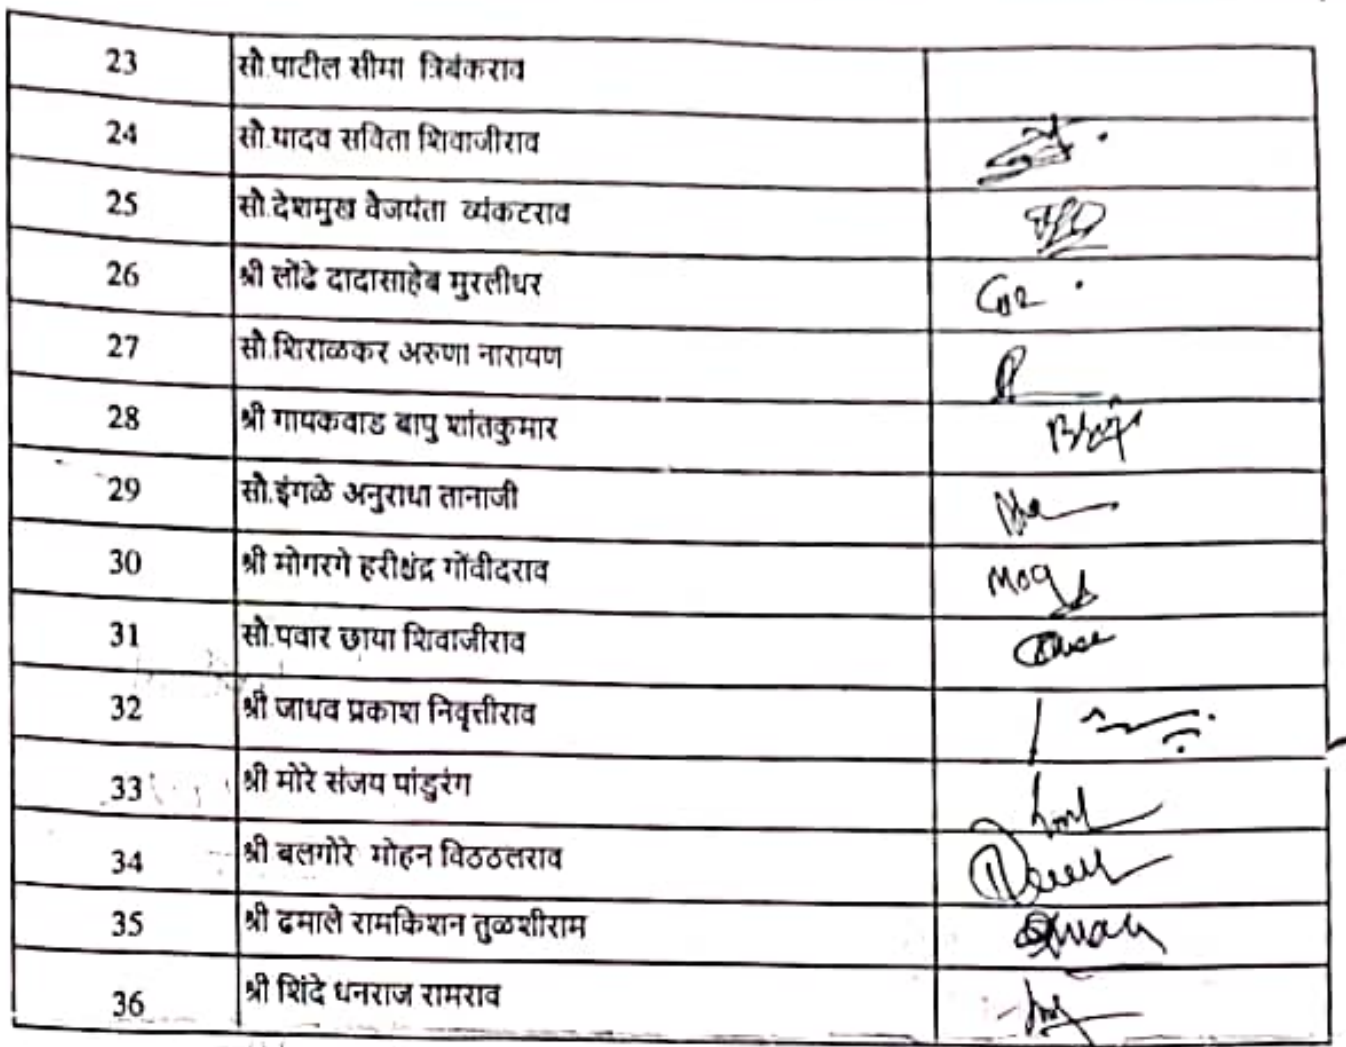 23 सौ.पाटील सीमा त्रिबंकराव
24 सौ.यादव सविता शिवाजीराव
25 सौ.देशमुख वैजयंता व्यंकटराव
26 श्री लोंढे दादासाहेब मुरलीधर
27 सौ.शिराळकर अरुणा नारायण
28 श्री गायकवाड बापु शांतकुमार
29 सौ.इंगळे अनुराधा तानाजी
30 श्री मोगरगे हरीश्चंद्र गोंवीदराव
31 सौ.पवार छाया शिवाजीराव
32 श्री जाधव प्रकाश निवृत्तीराव
33 श्री मोरे संजय पांडुरंग
34 श्री बलगोरे मोहन विठठलराव
35 श्री ढमाले रामकिशन तुळशीराम
36 श्री शिंदे धनराज रामराव